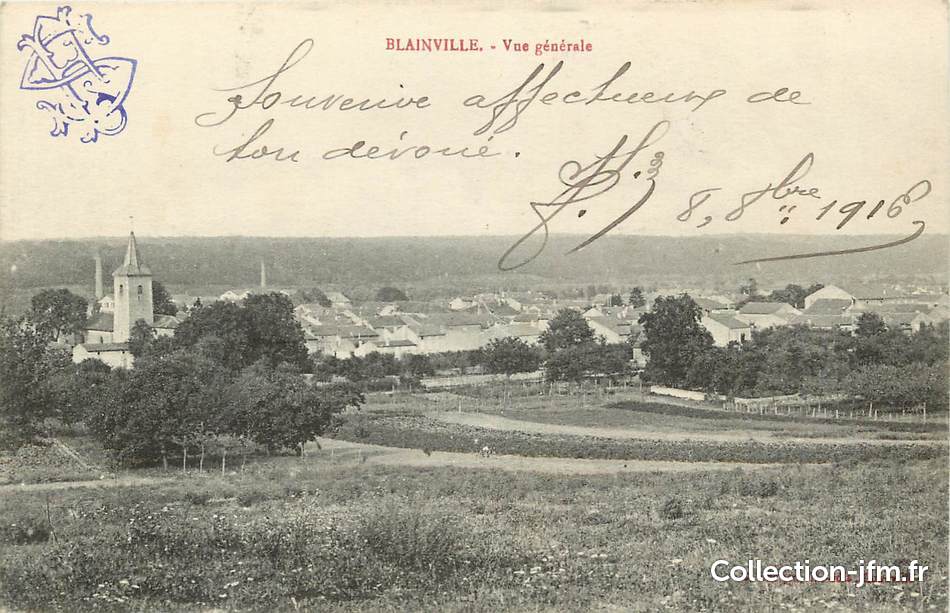 BLAINVILLE. - Vue générale
Souvenir affectueux de
ton dévoué.
8, 8bre 1916
Collection-jfm.fr